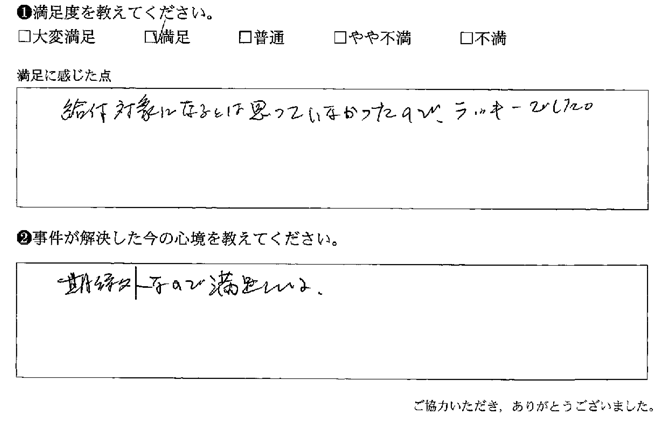 ❶満足度を教えてください。
□大変満足 ☑満足 □普通 □やや不満 □不満
満足に感じた点
給付対象になるとは思っていなかったので、ラッキーでした。
❷事件が解決した今の心境を教えてください。
期待外なので満足している。
ご協力いただき、ありがとうございました。